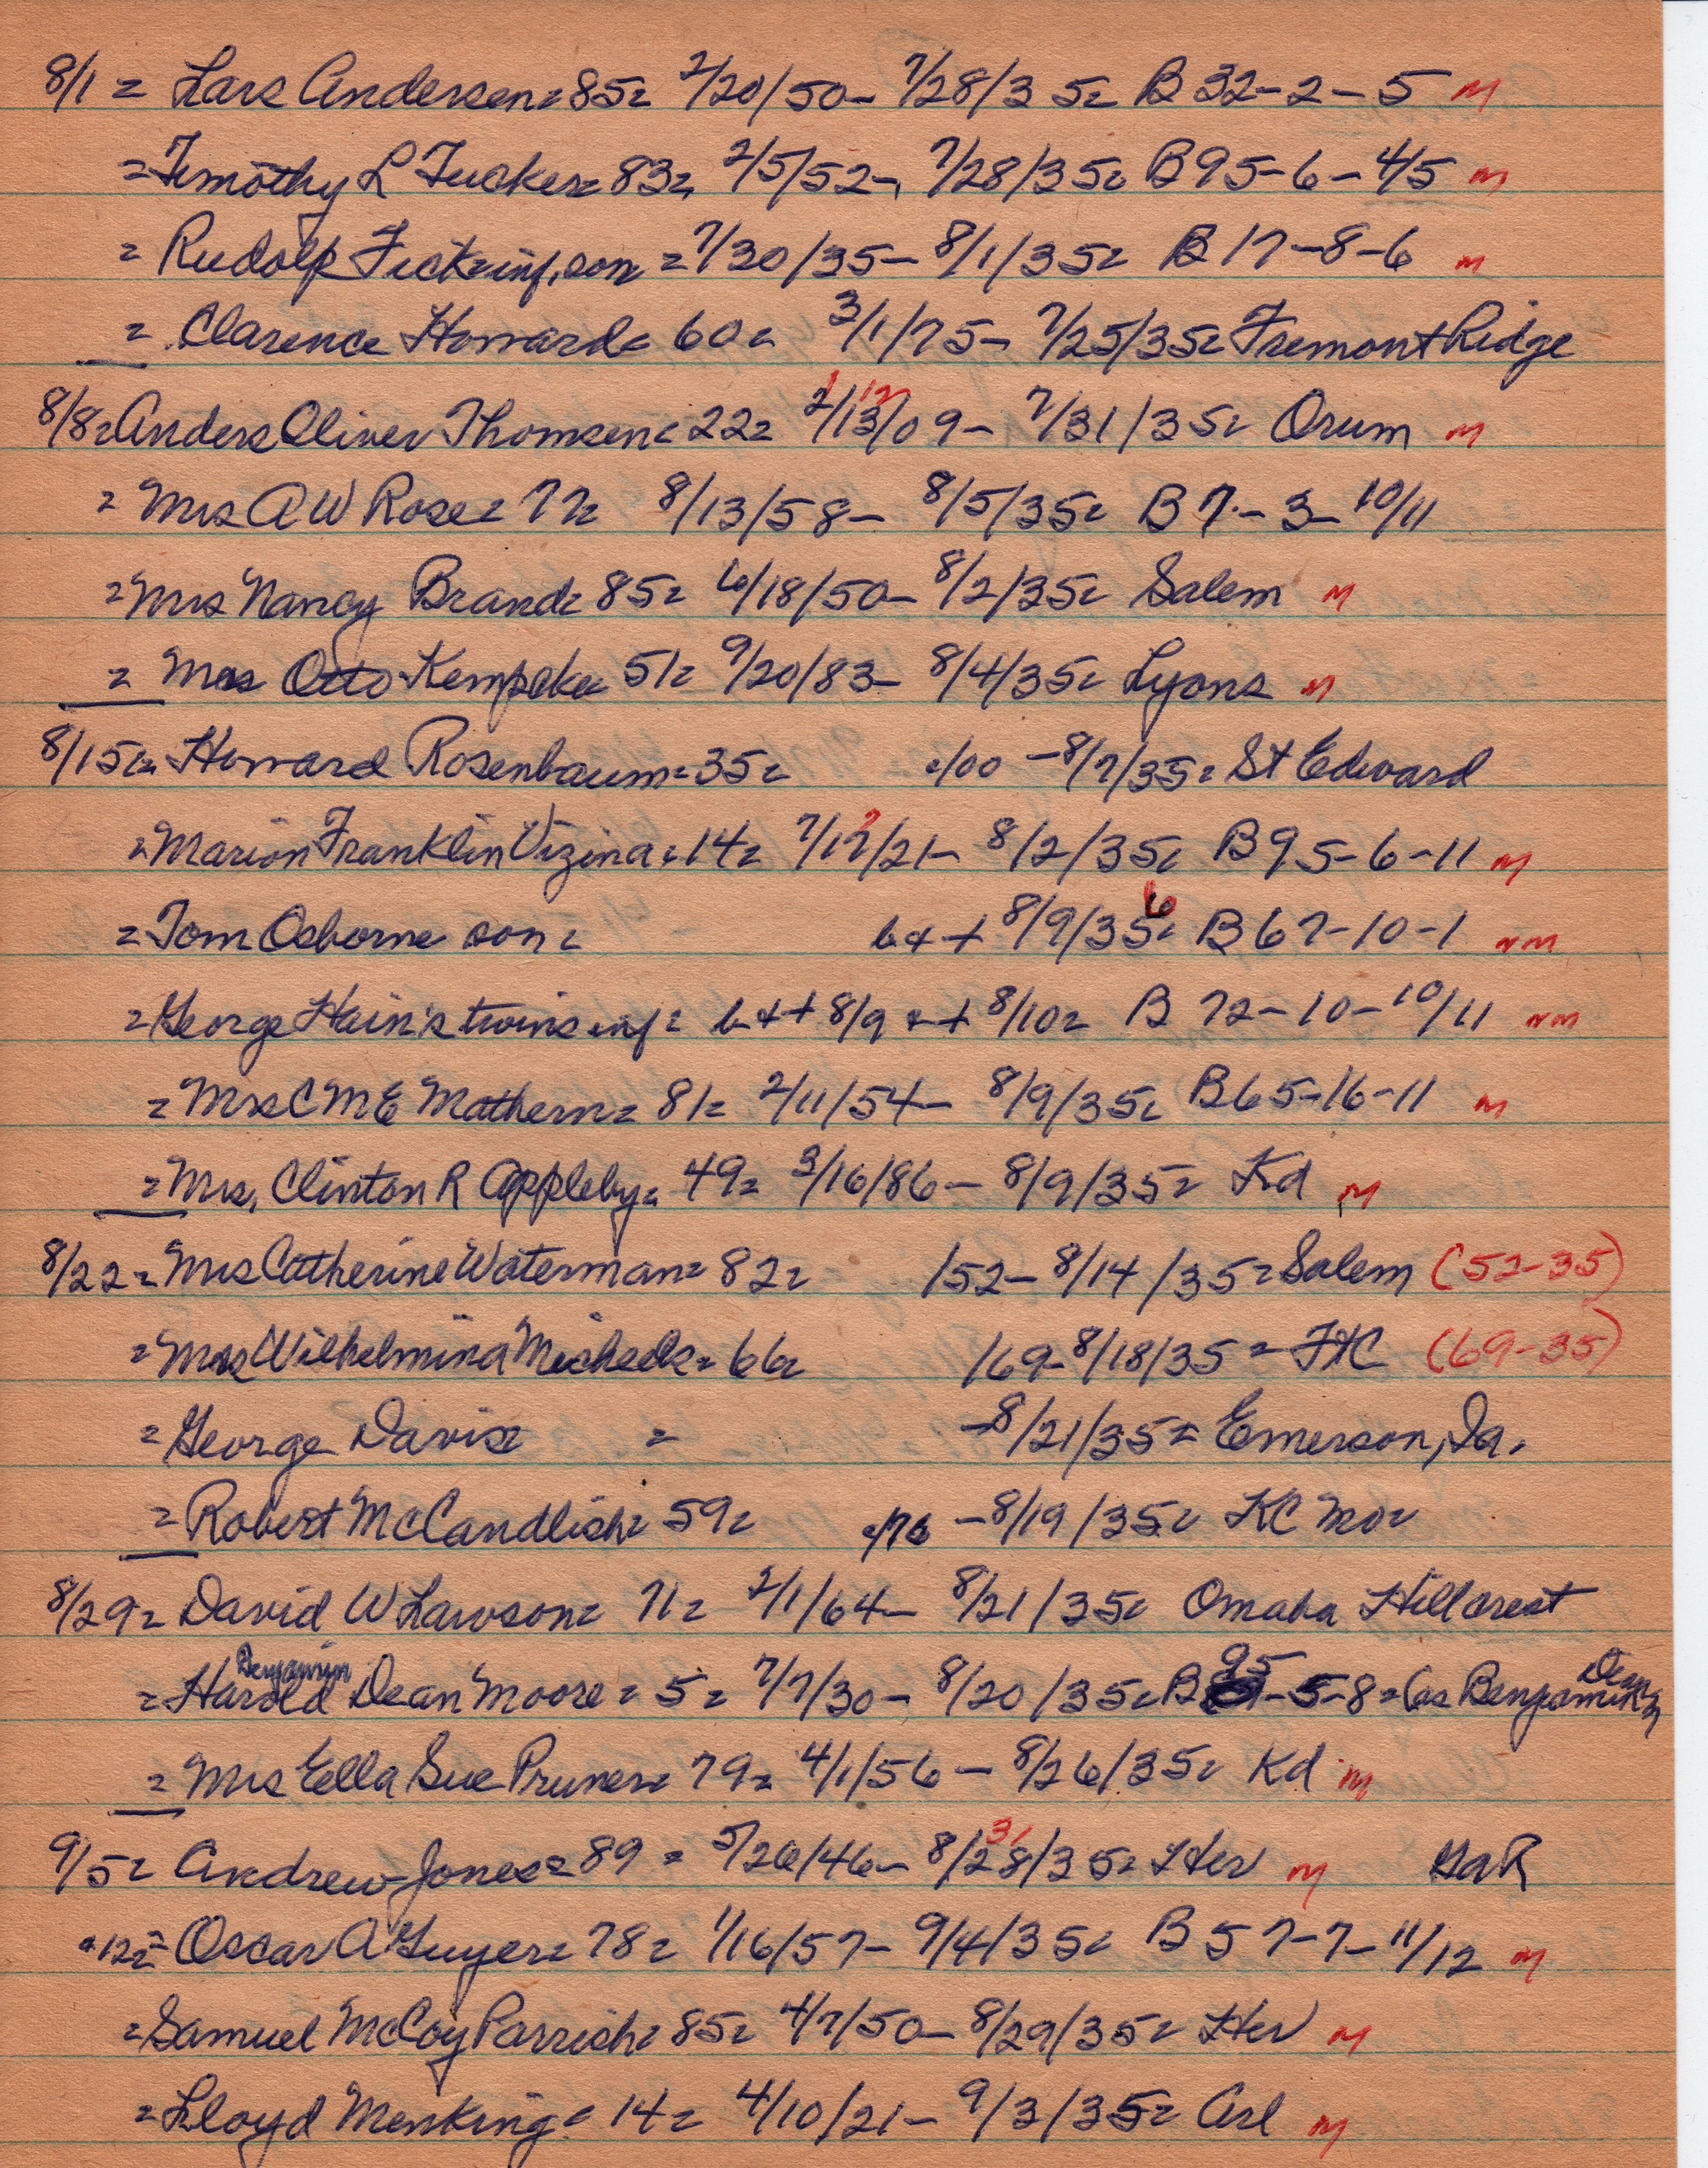 8/1 = Lars Andersen = 85 = 2/20/50 - 7/28/35 = B 32-2-5 M
= Timothy L Tucker = 83 = 2/5/52 - 7/28/35 = B 95-6-4/5 M
= Rudolf Fick inf, son = 7/30/35 - 8/1/35 = B 17-8-6 M
= Clarence Howard = 60 = 3/1/75 - 7/25/35 = Fremont Ridge
8/8 = Anders Oliver Thomsen = 22 = 2/13/09 - 7/31/35 = Orum M
= Mrs A W Rose = 77 = 8/13/58 - 8/5/35 = B 7-3-10/11
= Mrs Nancy Brand = 85 = 6/18/50 - 8/2/35 = Salem M
= Mrs Otto Kempcke = 51 = 9/20/83 - 8/4/35 = Lyons M
8/15 = Howard Rosenbaum = 35 = /00 - 8/7/35 = St Edward
= Marion Franklin Vizina = 14 = 7/17/21 - 8/2/35 = B 95-6-11 M
= Tom Osborne son = b & + 8/9/35 6 = B 67-10-1 NM
= George Hain's twins inf = b & + 8/9 & + 8/10 = B 72-10-10/11 NM
= Mrs C M E Mathern = 81 = 2/11/54 - 8/9/35 = B 65-16-11 M
= Mrs, Clinton R Appleby = 49 = 3/16/86 - 8/9/35 = Kd M
8/22 = Mrs Catherine Waterman = 82 = /52 - 8/14/35 = Salem (52-35)
= Mrs Wilhelmina = 66 = /69 - 8/18/35 = FtC (69-35)
= George Davis = = - 8/21/35 = Emerson, Ia.
= Robert McCandlish = 59 = /76 - 8/19/35 = KC Mo =
8/29 = David W Lawson = 71 = 2/1/64 - 8/21/35 = Omaha Hillcrest
= Harold Benjamin Dean Moore = 5 = 7/7/30 - 8/20/35 = B 95-5-8 = (as Benjamin Dean
= Mrs Ella Sue Pruner = 79 = 4/1/56 - 8/26/35 = Kd M
9/5 = Andrew Jones = 89 = 5/26/46 - 8/28/35 = Her M GaR
"12 = Oscar A Guyer = 78 = 1/16/57 - 9/4/35 = B 57-7-11/12 M
= Samuel McCoy Parrish = 85 = 4/7/50 - 8/29/35 = Her M
= Lloyd Menking = 14 = 4/10/21 - 9/3/35 = Arl M